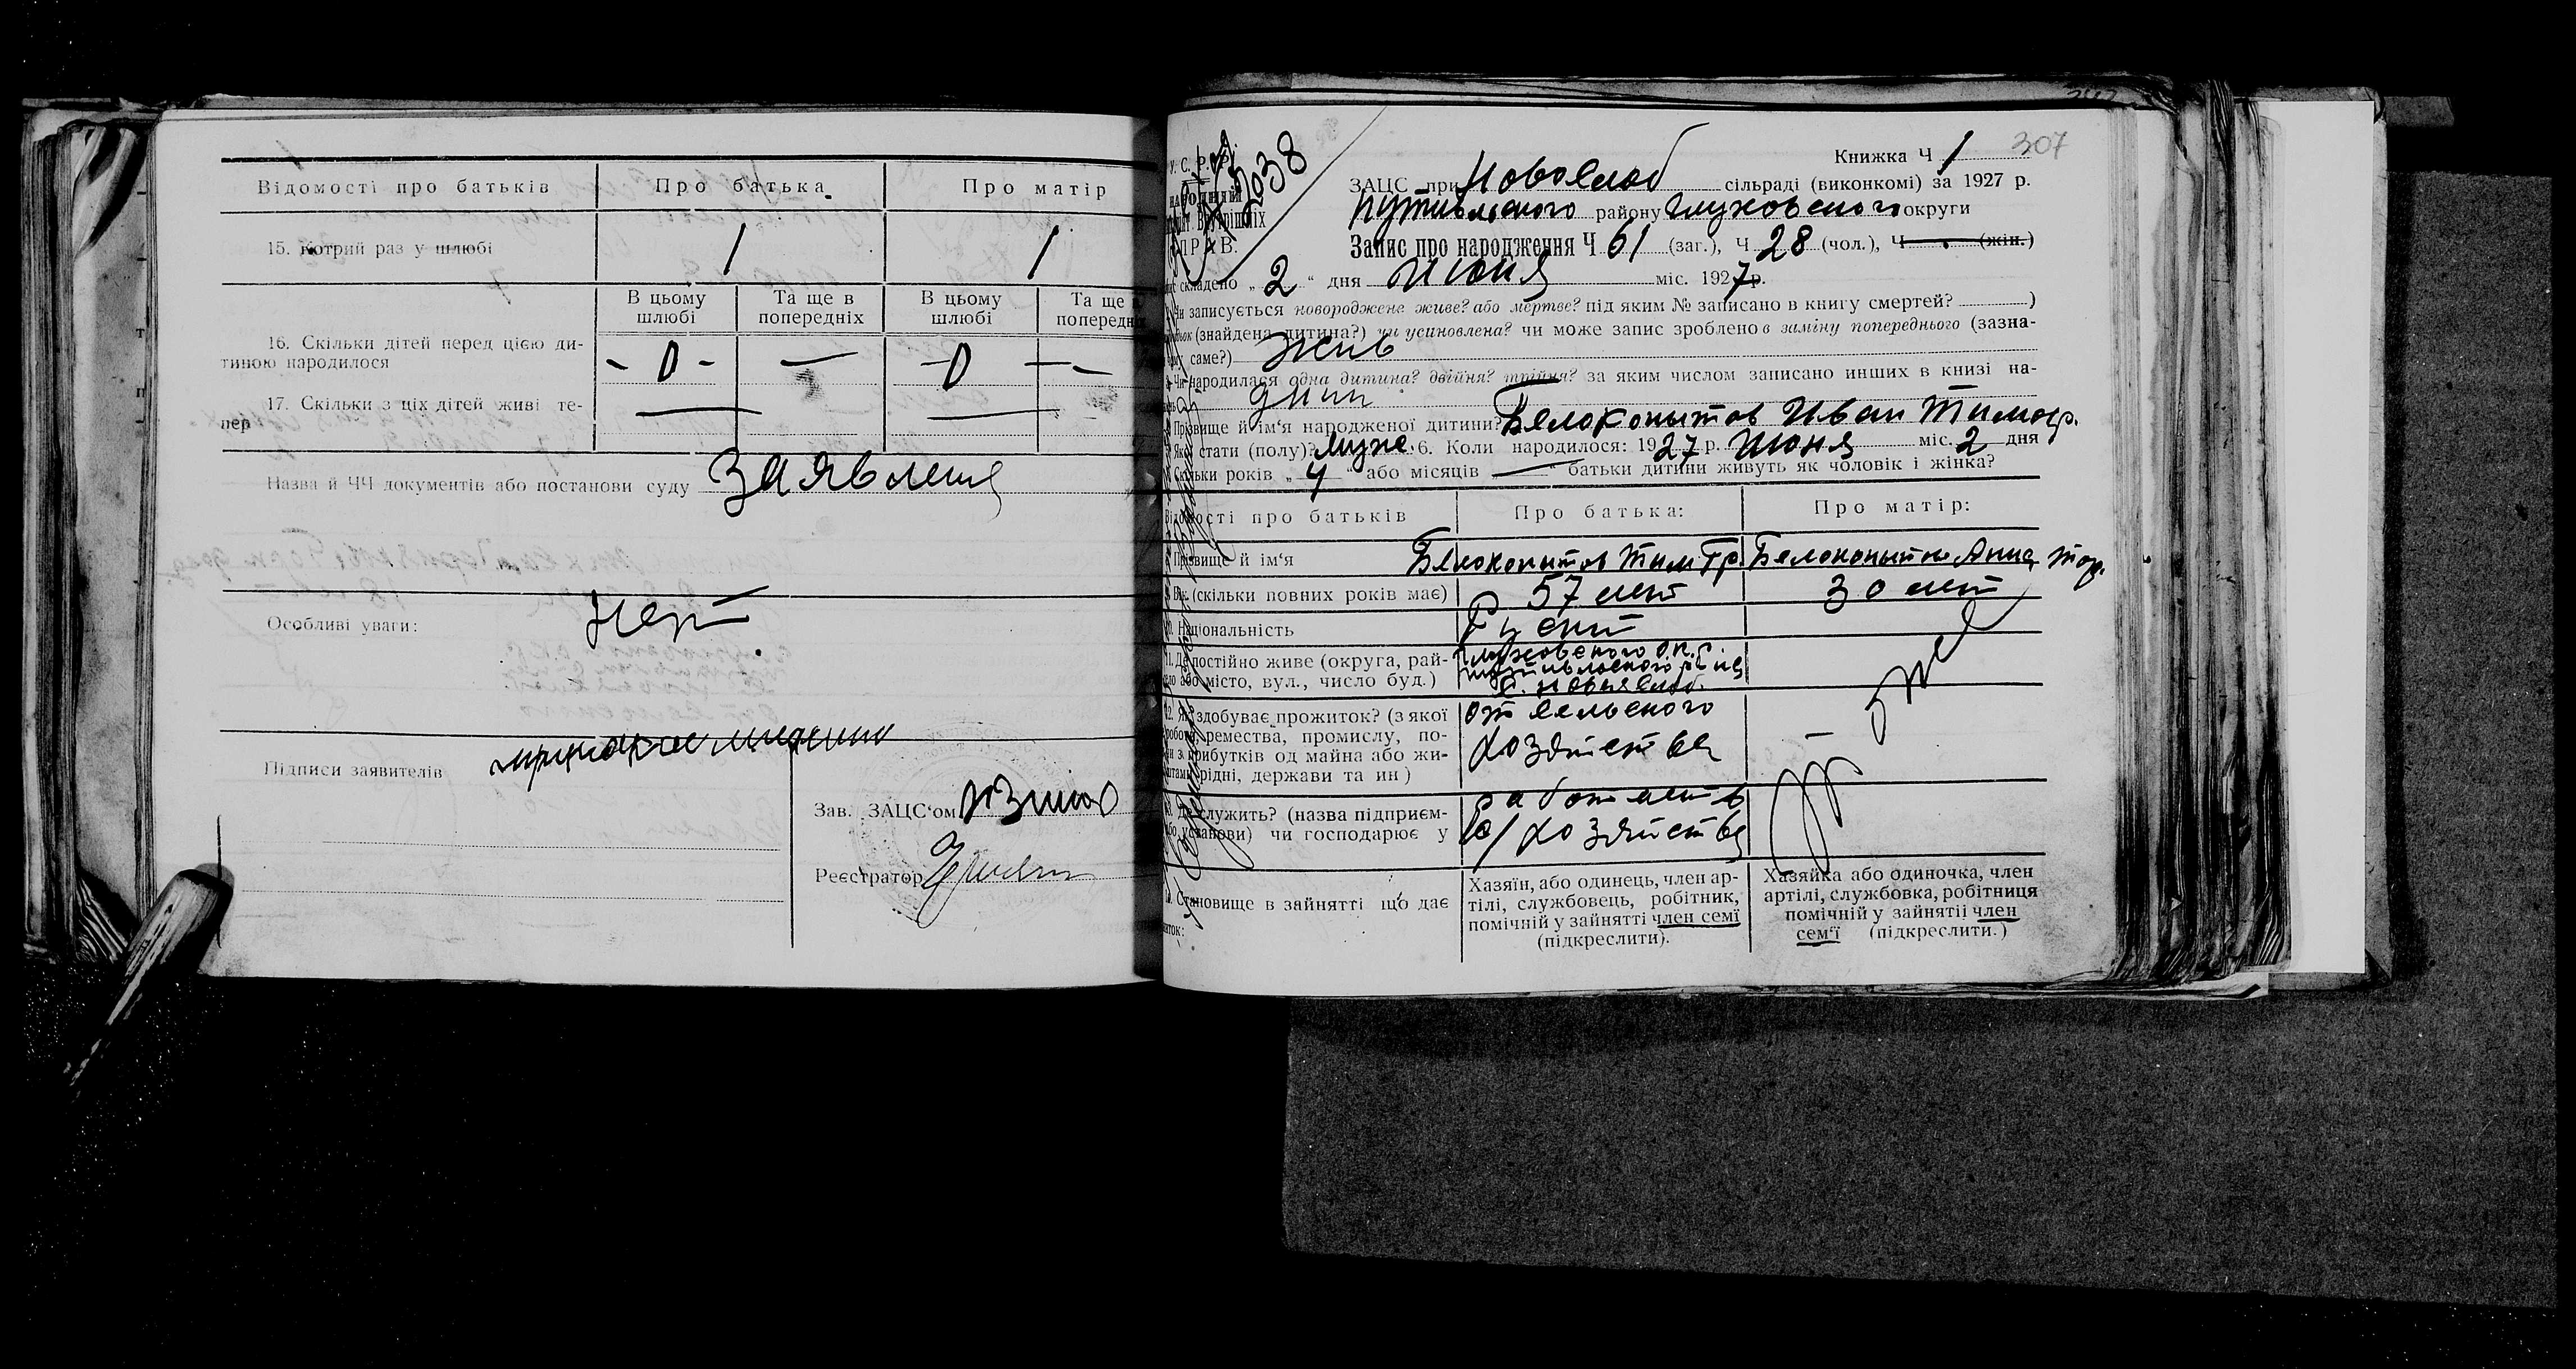 Відомості про батьків Про батька Про матір
15. Котрий раз у шлюбі 1 1
В цьому шлюбі Та ще в попередніх В цьому шлюбі Та ще в
16. Скільки дітей перед цією ди-
тиною народилося - 0 - — - 0 - —
17. Скільки з ціх дітей живі те-
пер — —
Назва й ЧЧ документів або постанови суду Заявления
Особливі уваги: Нет
Підписи заявителів
Зав. ЗАЦС'ом
Реєстратор
307
У. С. Р. Р.
2038
Книжка Ч 1
ЗАЦС при Новослоб сільраді (виконкомі) за 1927 р.
Путивльского району Глуховского округи
СПРАВ.
Запис про народження Ч 61 (заг.), Ч 28 (чол.), Ч (жін.)
складено „ 2 " дня Июня міс. 1927 р.
Чи записується новороджене живе? або мертве? під яким № записано в книгу смертей? )
(знайдена дитина?) чи усиновлена? чи може запис зроблено в заміну попереднього (зазна-
саме?) Жив
Чи народилася одна дитина? двійня? трійня? за яким числом записано инших в книзі на-
один
Прізвище й ім'я народженої дитини? Белокопытов Иван Тимоф.
Якої стати (полу)? Муж. 6. Коли народилося: 1927 р. Июня міс. 2 дня
Скільки років „ 4 " або місяців — " батьки дитини живуть як чоловік і жінка?
Відомості про батьків Про батька: Про матір:
Прізвище й ім'я Белокопытов Тим Гр. Белокопытов Анна
9. Вік (скільки повних років має) 57 лет 30 лет
10. Національність
11. Де постійно живе (округа, рай- Глуховского окр.
село або місто, вул., число буд.) Путивльского р на
с. Новая Слоб.
12. Як здобуває прожиток? (з якої От сельского
роботи, ремества, промислу, по- хозяйства
чи з прибутків од майна або жи-
рідні, держави та ин)
13. Де служить? (назва підприєм- работает в
або установи) чи господарює у с/хозяйстве
14. Становище в зайнятті що дає
Хазяїн, або одинець, член ар-
тілі, службовець, робітник,
помічній у зайнятті член семї
(підкреслити).
Хазяйка або одиночка, член
артілі, службовка, робітниця
помічній у зайнятіі член
сем'ї (підкреслити.)